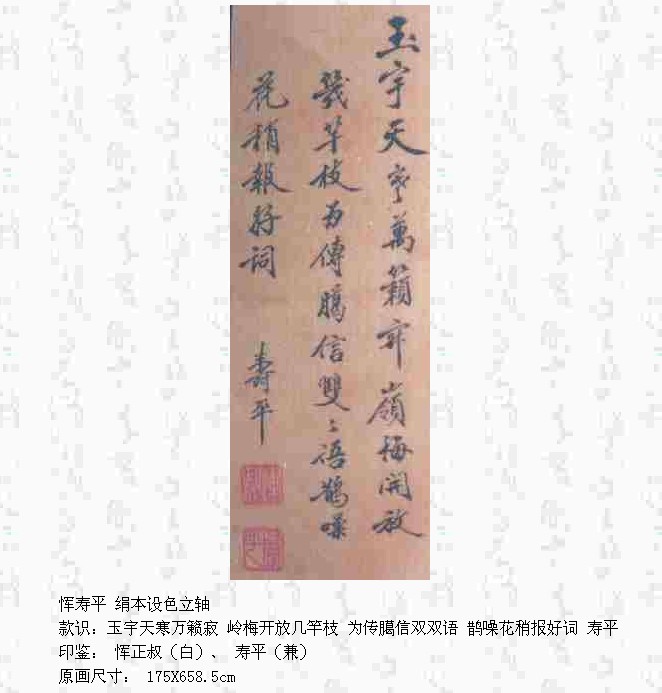 玉宇天寒萬籟寂嶺梅開放
幾竿枝为傳臈信雙〻語鵲噪
花稍報好詞 壽平
恽寿平 绢本设色立轴
款识：玉宇天寒万籁寂 岭梅开放几竿枝 为传臈信双双语 鹊噪花稍报好词 寿平
印鉴： 恽正叔（白）、 寿平（兼）
原画尺寸： 175X658.5cm